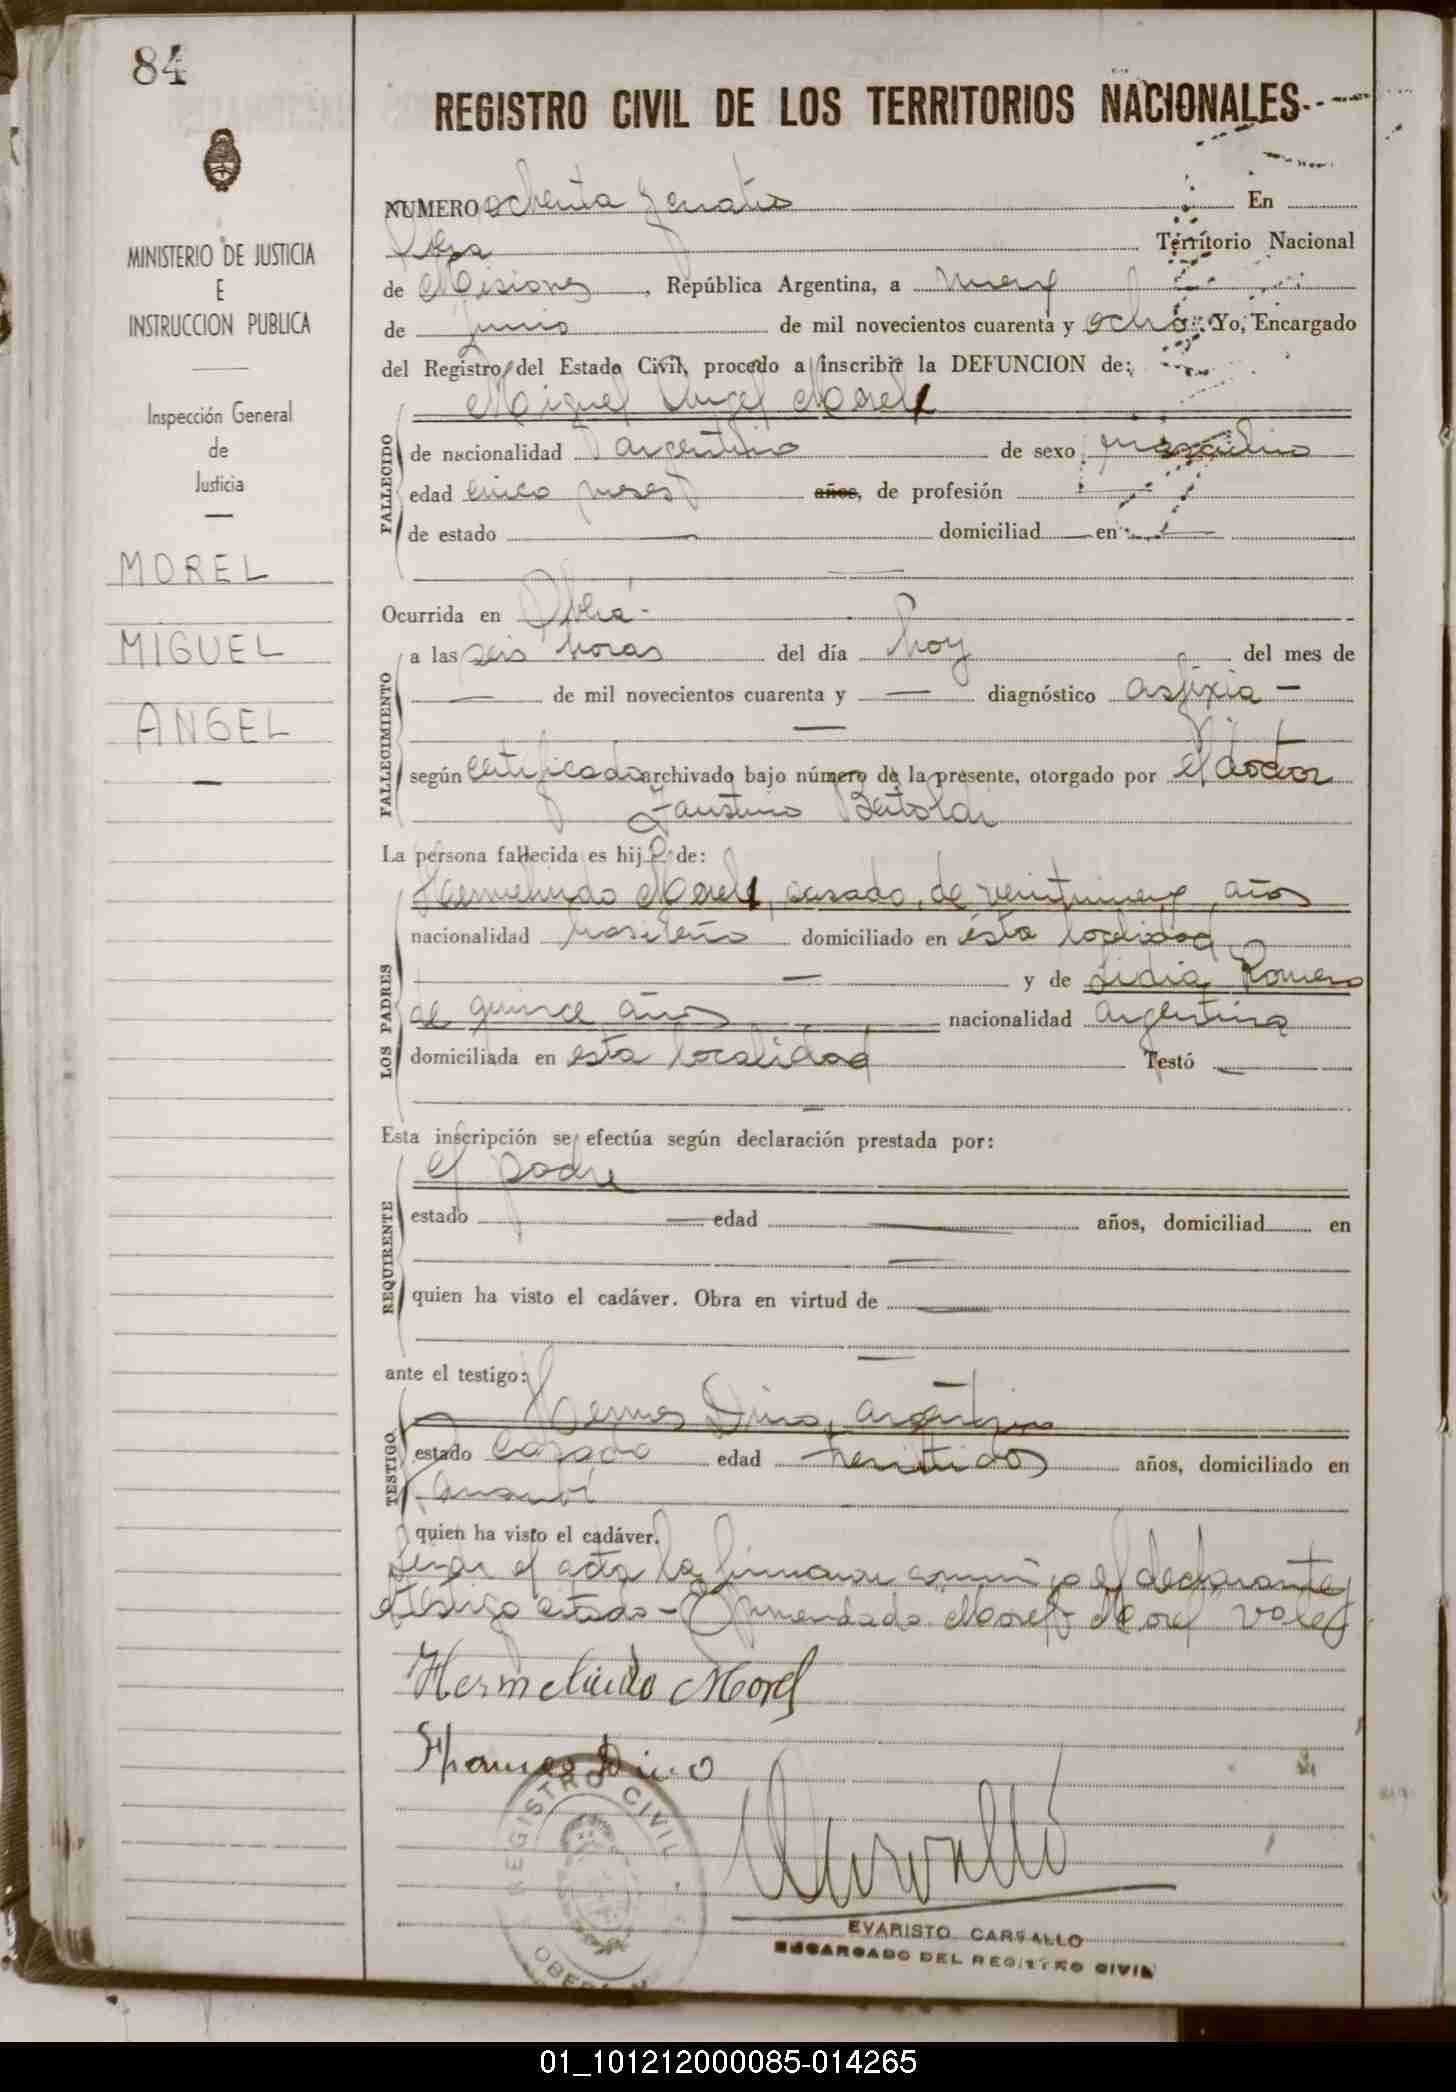 84
REGISTRO CIVIL DE LOS TERRITORIOS NACIONALES
MINISTERIO DE JUSTICIA
E
INSTRUCCION PUBLICA
Inspección General
de
Justicia
MOREL
MIGUEL
ANGEL
NUMERO ochenta y cuatro En
Obera Territorio Nacional
de Misiones, República Argentina, a nueve
de junio de mil novecientos cuarenta y ocho. Yo, Encargado
del Registro del Estado Civil, procedo a inscribir la DEFUNCION de:
Miguel Angel Morel
FALLECIDO
de nacionalidad argentino de sexo masculino
edad cinco meses años, de profesión —
de estado — domiciliad — en —
Ocurrida en Oberá -
FALLECIMIENTO
a las seis horas del día hoy del mes de
— de mil novecientos cuarenta y — diagnóstico asfixia —
según certificado archivado bajo número de la presente, otorgado por el doctor
Faustino Bertoldi
La persona fallecida es hijo de:
LOS PADRES
Hermelindo Morel, casado, de veintinueve años
nacionalidad brasileño domiciliado en ésta localidad
— y de Lidia Romero
de quince años — nacionalidad argentina
domiciliada en esta localidad Testó —
Esta inscripción se efectúa según declaración prestada por:
REQUIRENTE
el padre
estado — edad — años, domiciliad en
—
quien ha visto el cadáver. Obra en virtud de —
—
ante el testigo:
TESTIGO
Dino, argentino
estado casado edad treintidos años, domiciliado en
quien ha visto el cadáver.
el acta la firmaron conmigo el declarante
y testigo citado - Enmendado "Morel" Morel Vale
Hermelindo Morel
Dino
REGISTRO CIVIL
OBERA
EVARISTO CARVALLO
ENCARGADO DEL REGISTRO CIVIL
01_101212000085-014265